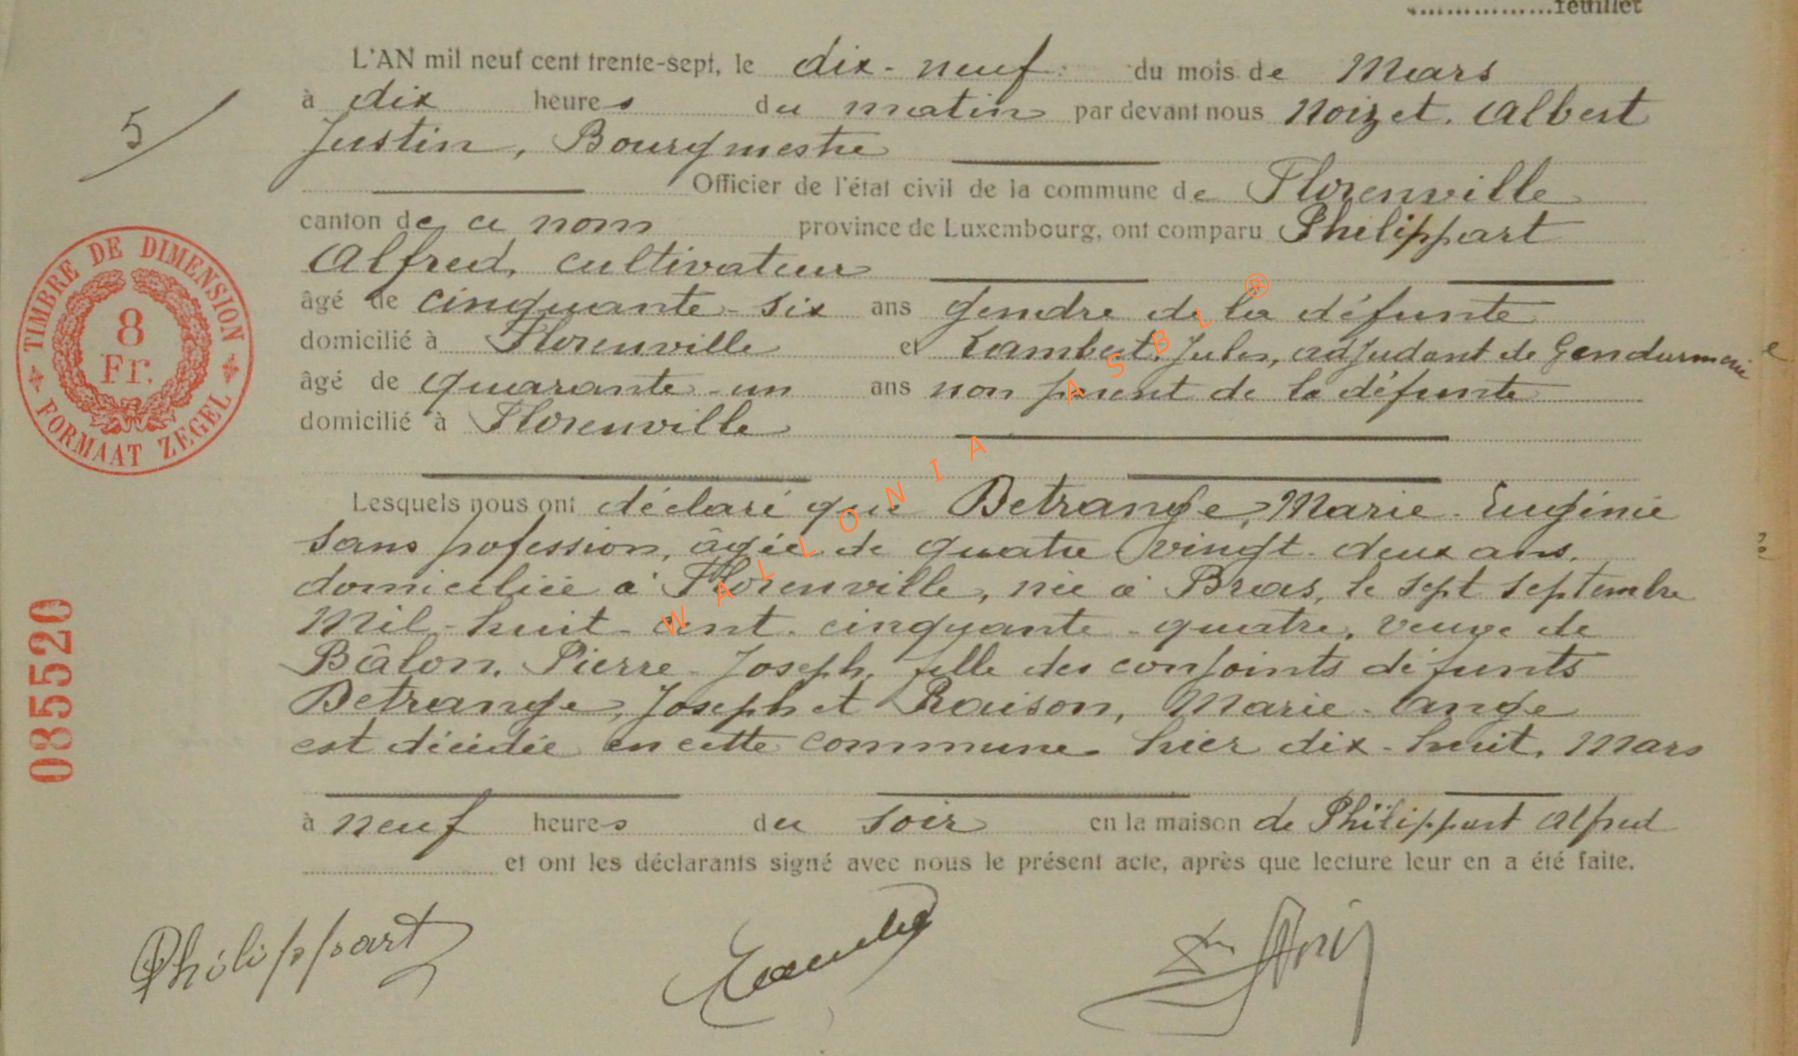 feuillet
L'AN mil neuf cent trente-sept, le dix-neuf du mois de Mars
5
à dix heures du matin par devant nous Noizet. Albert
Justin, Bourgmestre
Officier de l'état civil de la commune de Florenville
canton de ce nom province de Luxembourg, ont comparu Philippart
Alfred, cultivateur
âgé de cinquante-six ans gendre de la défunte
domicilié à Florenville et Lambert, Jules, adjudant de Gendarmerie
âgé de quarante-un ans non parent de la défunte
domicilié à Florenville
TIMBRE DE DIMENSION
8
Fr.
FORMAAT ZEGEL
Lesquels nous ont déclaré que Detrange, Marie-Eugénie
sans profession, âgée de quatre vingt-deux ans,
domiciliée à Florenville, née à Bras, le sept septembre
Mil-huit-cent-cinquante-quatre, veuve de
Bâlon, Pierre-Joseph, fille des conjoints défunts
Detrange, Joseph et Raison, Marie-Ange
est décédée en cette commune hier dix-huit, Mars
à neuf heures du soir en la maison de Philippart Alfred
et ont les déclarants signé avec nous le présent acte, après que lecture leur en a été faite.
035520
WALLONIA ASBL ®
Philippart